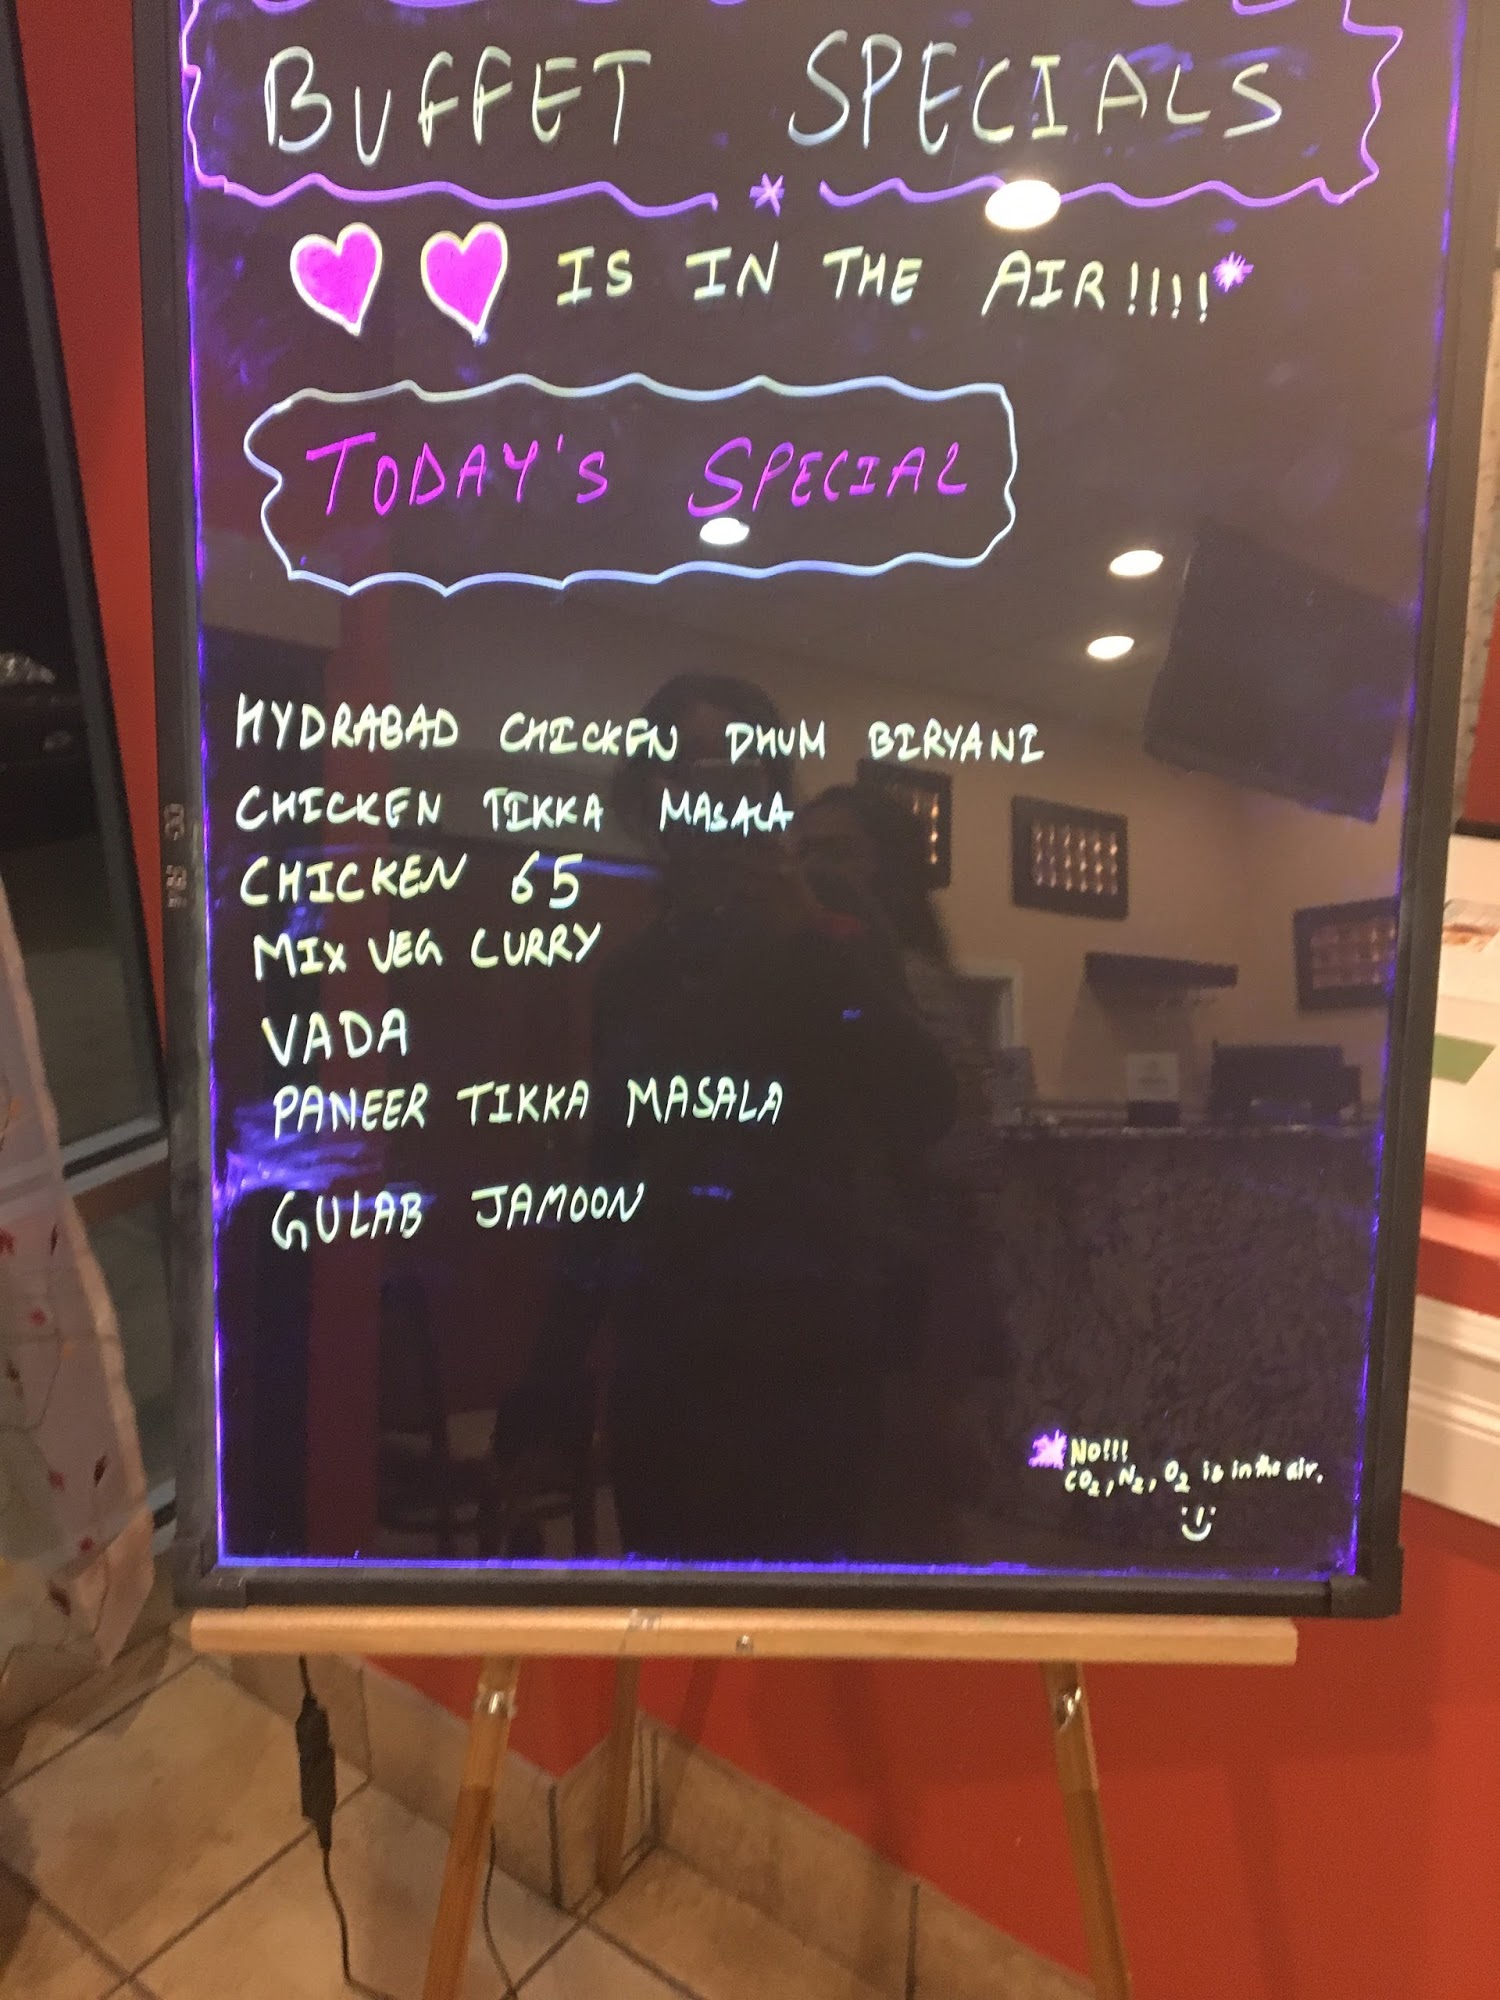 BUFFET SPECIALS
IS IN THE AIR!!!!*
TODAY'S SPECIAL
HYDRABAD CHICKEN DHUM BIRYANI
CHICKEN TIKKA MASALA
CHICKEN 65
MIX VEG CURRY
VADA
PANEER TIKKA MASALA
GULAB JAMOON
*NO!!!
CO2, N2, O2 is in the air.